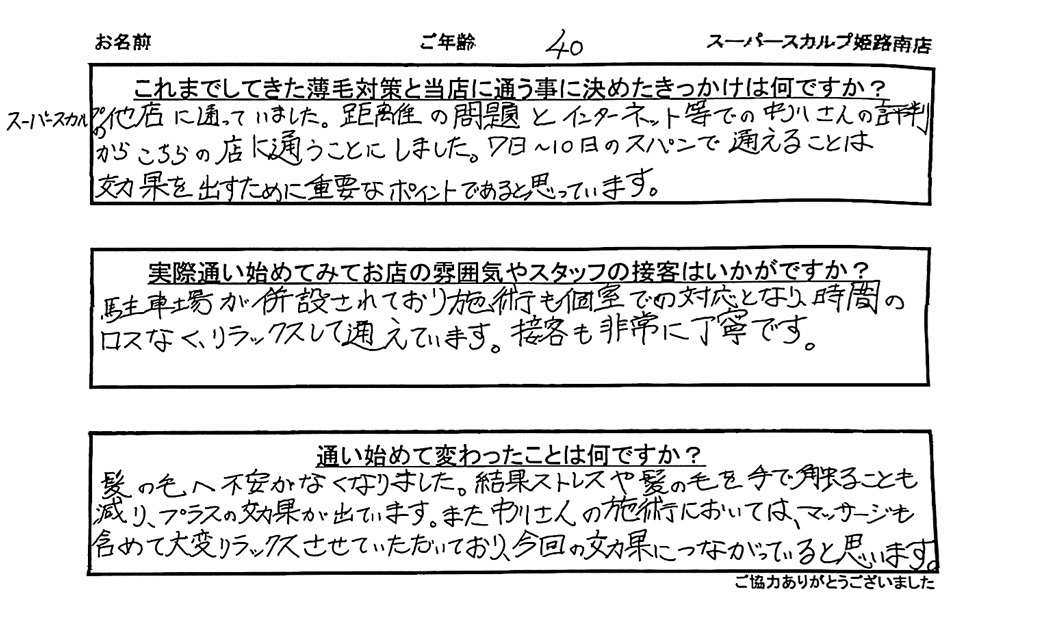 お名前 ご年齢 40 スーパースカルプ姫路南店
これまでしてきた薄毛対策と当店に通う事に決めたきっかけは何ですか？
スーパースカルプの他店に通っていました。距離の問題とインターネット等での中川さんの評判
からこちらの店に通うことにしました。7日～10日のスパンで通えることは
効果を出すために重要なポイントであると思っています。
実際通い始めてみてお店の雰囲気やスタッフの接客はいかがですか？
駐車場が併設されており施術も個室での対応となり、時間の
ロスなく、リラックスして通えています。接客も非常に丁寧です。
通い始めて変わったことは何ですか？
髪の毛へ不安がなくなりました。結果ストレスや髪の毛を手で触ることも
減り、プラスの効果が出ています。また中川さんの施術においては、マッサージも
含めて大変リラックスさせていただいており、今回の効果につながっていると思います。
ご協力ありがとうございました